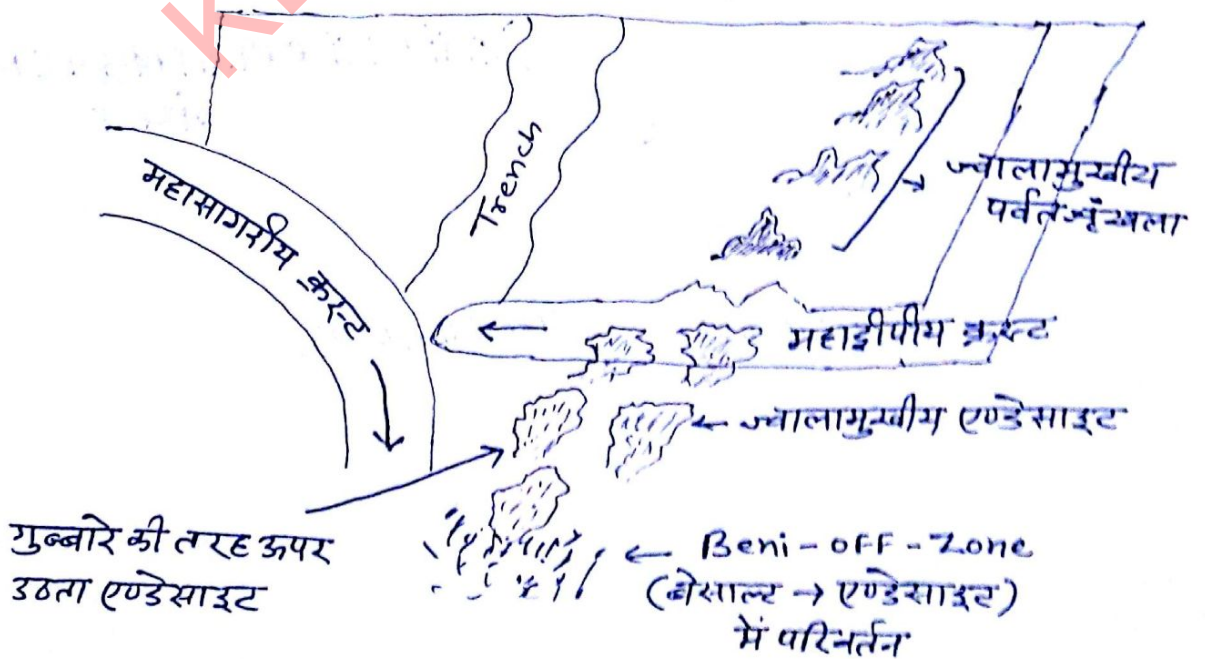 Trench
महासागरीय क्रस्ट
ज्वालामुखीय
पर्वत शृंखला
महाद्वीपीय क्रस्ट
ज्वालामुखीय एण्डेसाइट
गुब्बारे की तरह ऊपर
उठता एण्डेसाइट
Beni-off-Zone
(बेसाल्ट → एण्डेसाइट)
में परिवर्तन